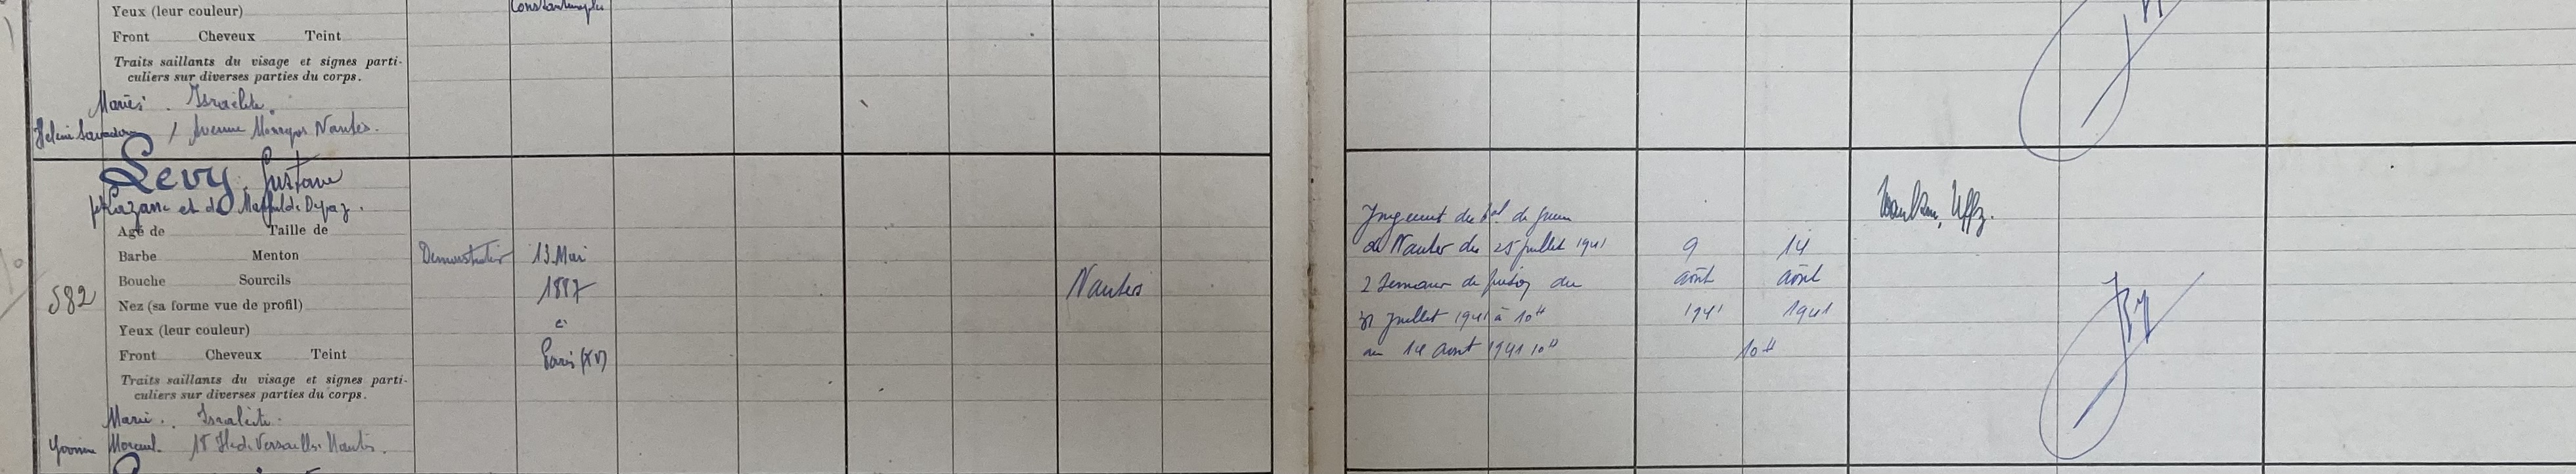 Constantinople
Yeux (leur couleur)
Front Cheveux Teint
Traits saillants du visage et signes parti-
culiers sur diverses parties du corps.
Marié. Israélite.
1 Avenue Nantes.
Levy, Gustave
et de Mathilde
Agé de Taille de
Barbe Menton
Bouche Sourcils
582
Nez (sa forme vue de profil)
Yeux (leur couleur)
Front Cheveux Teint
Traits saillants du visage et signes parti-
culiers sur diverses parties du corps.
Marié. Israélite.
Yvonne 18 Ile de Versailles Nantes.
13 Mai
1887
à
Paris (XV)
Nantes
Jugement du bal. de guerre
de Nantes du 25 juillet 1941
2 Semaines de prison du
31 juillet 1941 à 10H
au 14 Aout 1941 10H
9
août
1941
14
août
1941
10H
Uffz.